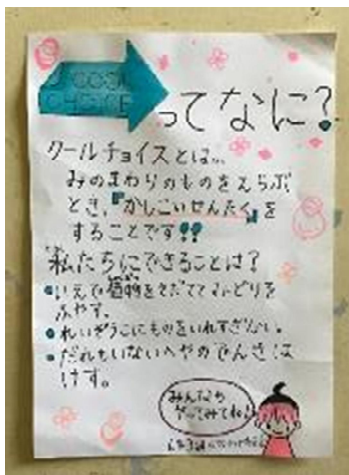 COOL CHOICE ってなに？
クールチョイスとは…
みのまわりのものをえらぶ
とき、『かしこいせんたく』を
することです!!
私たちにできることは？
•いえで植物をそだててみどりを
ふやす。
•れいぞうこにものをいれすぎない。
•だれもいないへやのでんきは
けす。
みんなも
やってみてね!